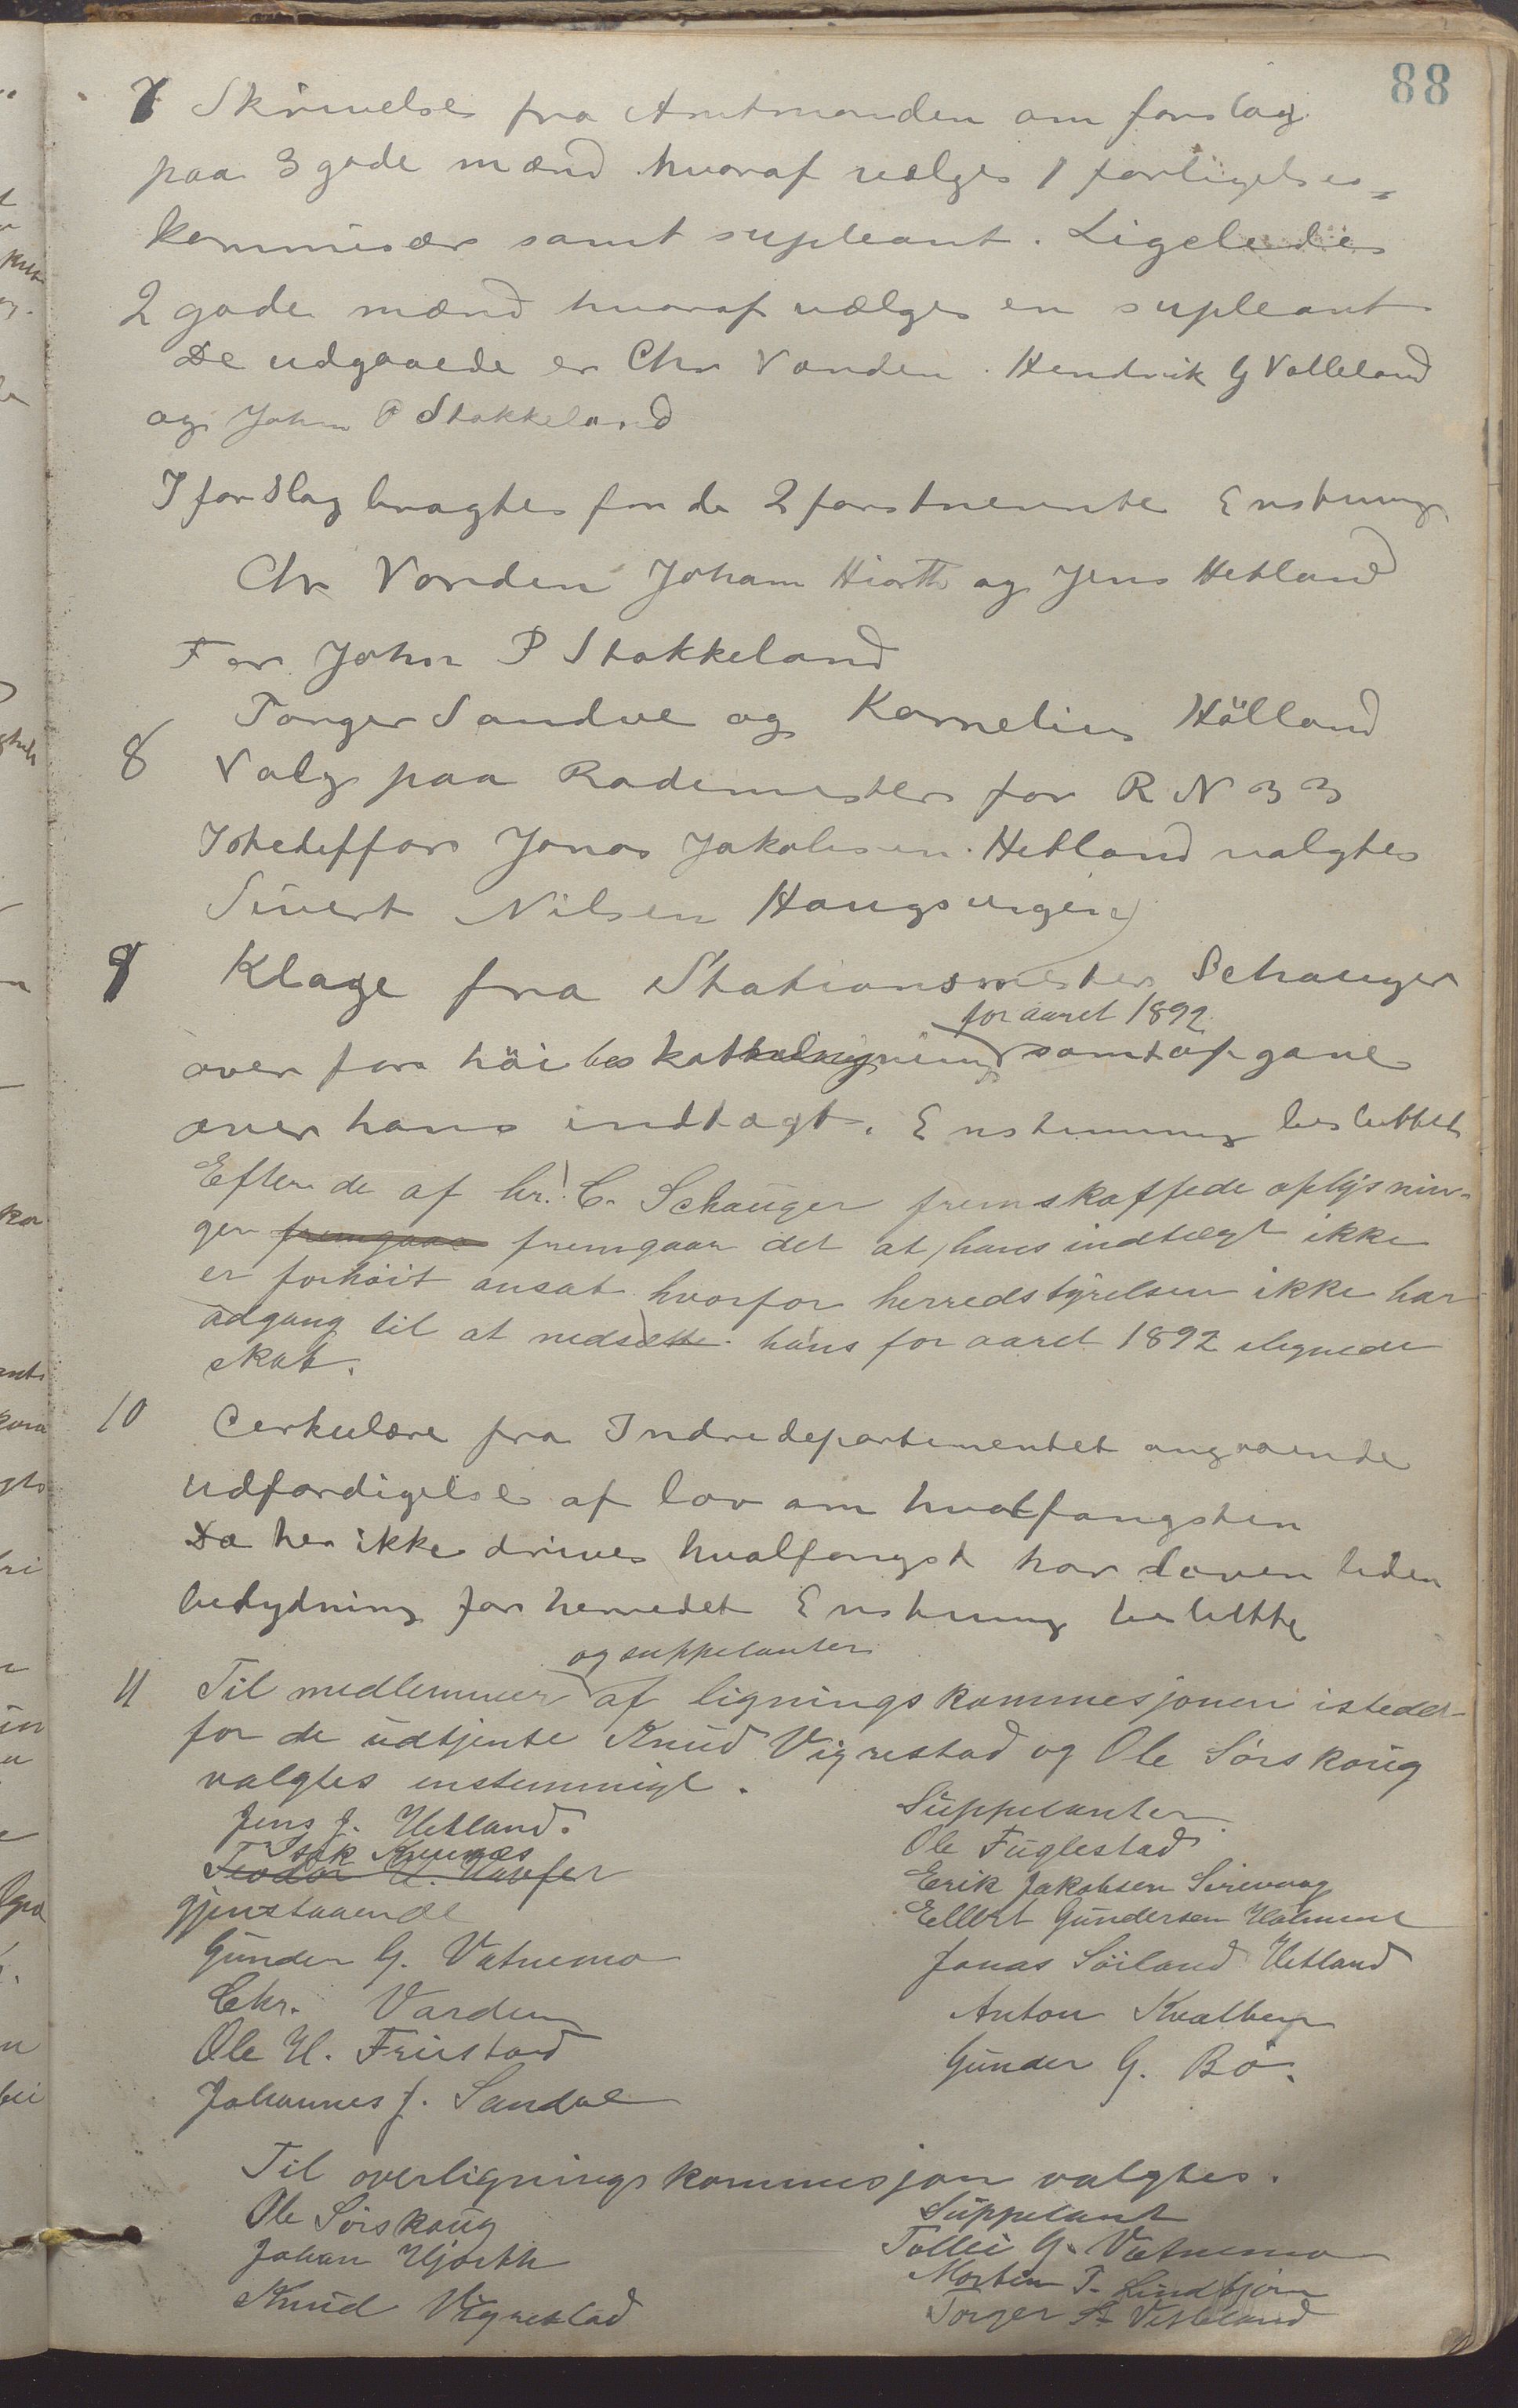 88
7 Skrivelse fra Amtmanden om forslag
paa 3 gode mænd hvoraf vælges 1 forligelses=
kommisær samt supleant. Ligeledes
2 gode mænd hvoraf vælges en supleant
De udgaaede er Chr Varden. Hendrik G Valleland
og John P Stokkeland
I forslag bragtes for de 2 førstnevnte Enstemig
Chr Varden Johan Hiorth og Jens Hetland
For John P Stokkeland
Torger Sandve og Kornelius Hölland
8 Valg paa Rodemester for R N 33
Istedetfor Jonas Jakobsen Hetland valgtes
Sivert Nilsen Haugsvegen
9 Klage fra Stationsmester Schauger
for aaret 1892
over for höi beskatning samt opgave
over hans indtægt. Enstemmig besluttet
Efter de af hr. C. Schauger fremskaffede oplysnin-
ger fremgaar fremgaar det at hans indtægt ikke
er forhöit ansat hvorfor herredstyrelsen ikke har
adgang til at nedsætte hans for aaret 1892 ilignede
skat.
10 Cerkulære fra Indredepartementet angaaende
udfærdigelse af lov om hvalfangsten
Da her ikke drives hvalfangst har loven liden
betydning for herredet Enstemig beslutte
og suppelanter
11 Til medlemmer af ligningskommesjonen istedet-
for de udtjente Knud Vigrestad og Ole Sörskoug
valgtes enstemmigt.
Jens J. Hetland.
Isak
Teodor U.
gjenstaaende
Gunder G. Vatnemo
Chr. Varden
Ole U. Fristad
Johannes J. Sandve
Suppelanter
Ole Fuglestad
Erik Jakobsen Sirevaag
Ellert Gundersen
Jonas Söiland Hetland
Anton Kvalbein
Gunder G. Bö.
Til overligningskommesjon valgtes.
Ole Sörskoug
Johan Hjorth
Knud Vigrestad
Suppelant
Tollei G. Vatnemo
Morten T. Lindtjörn
Torger